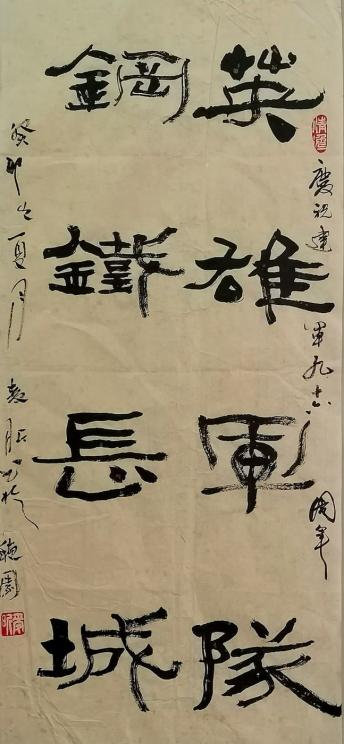 慶祝建軍九十六周年
英雄軍隊
鋼鐵長城
癸卯之夏月